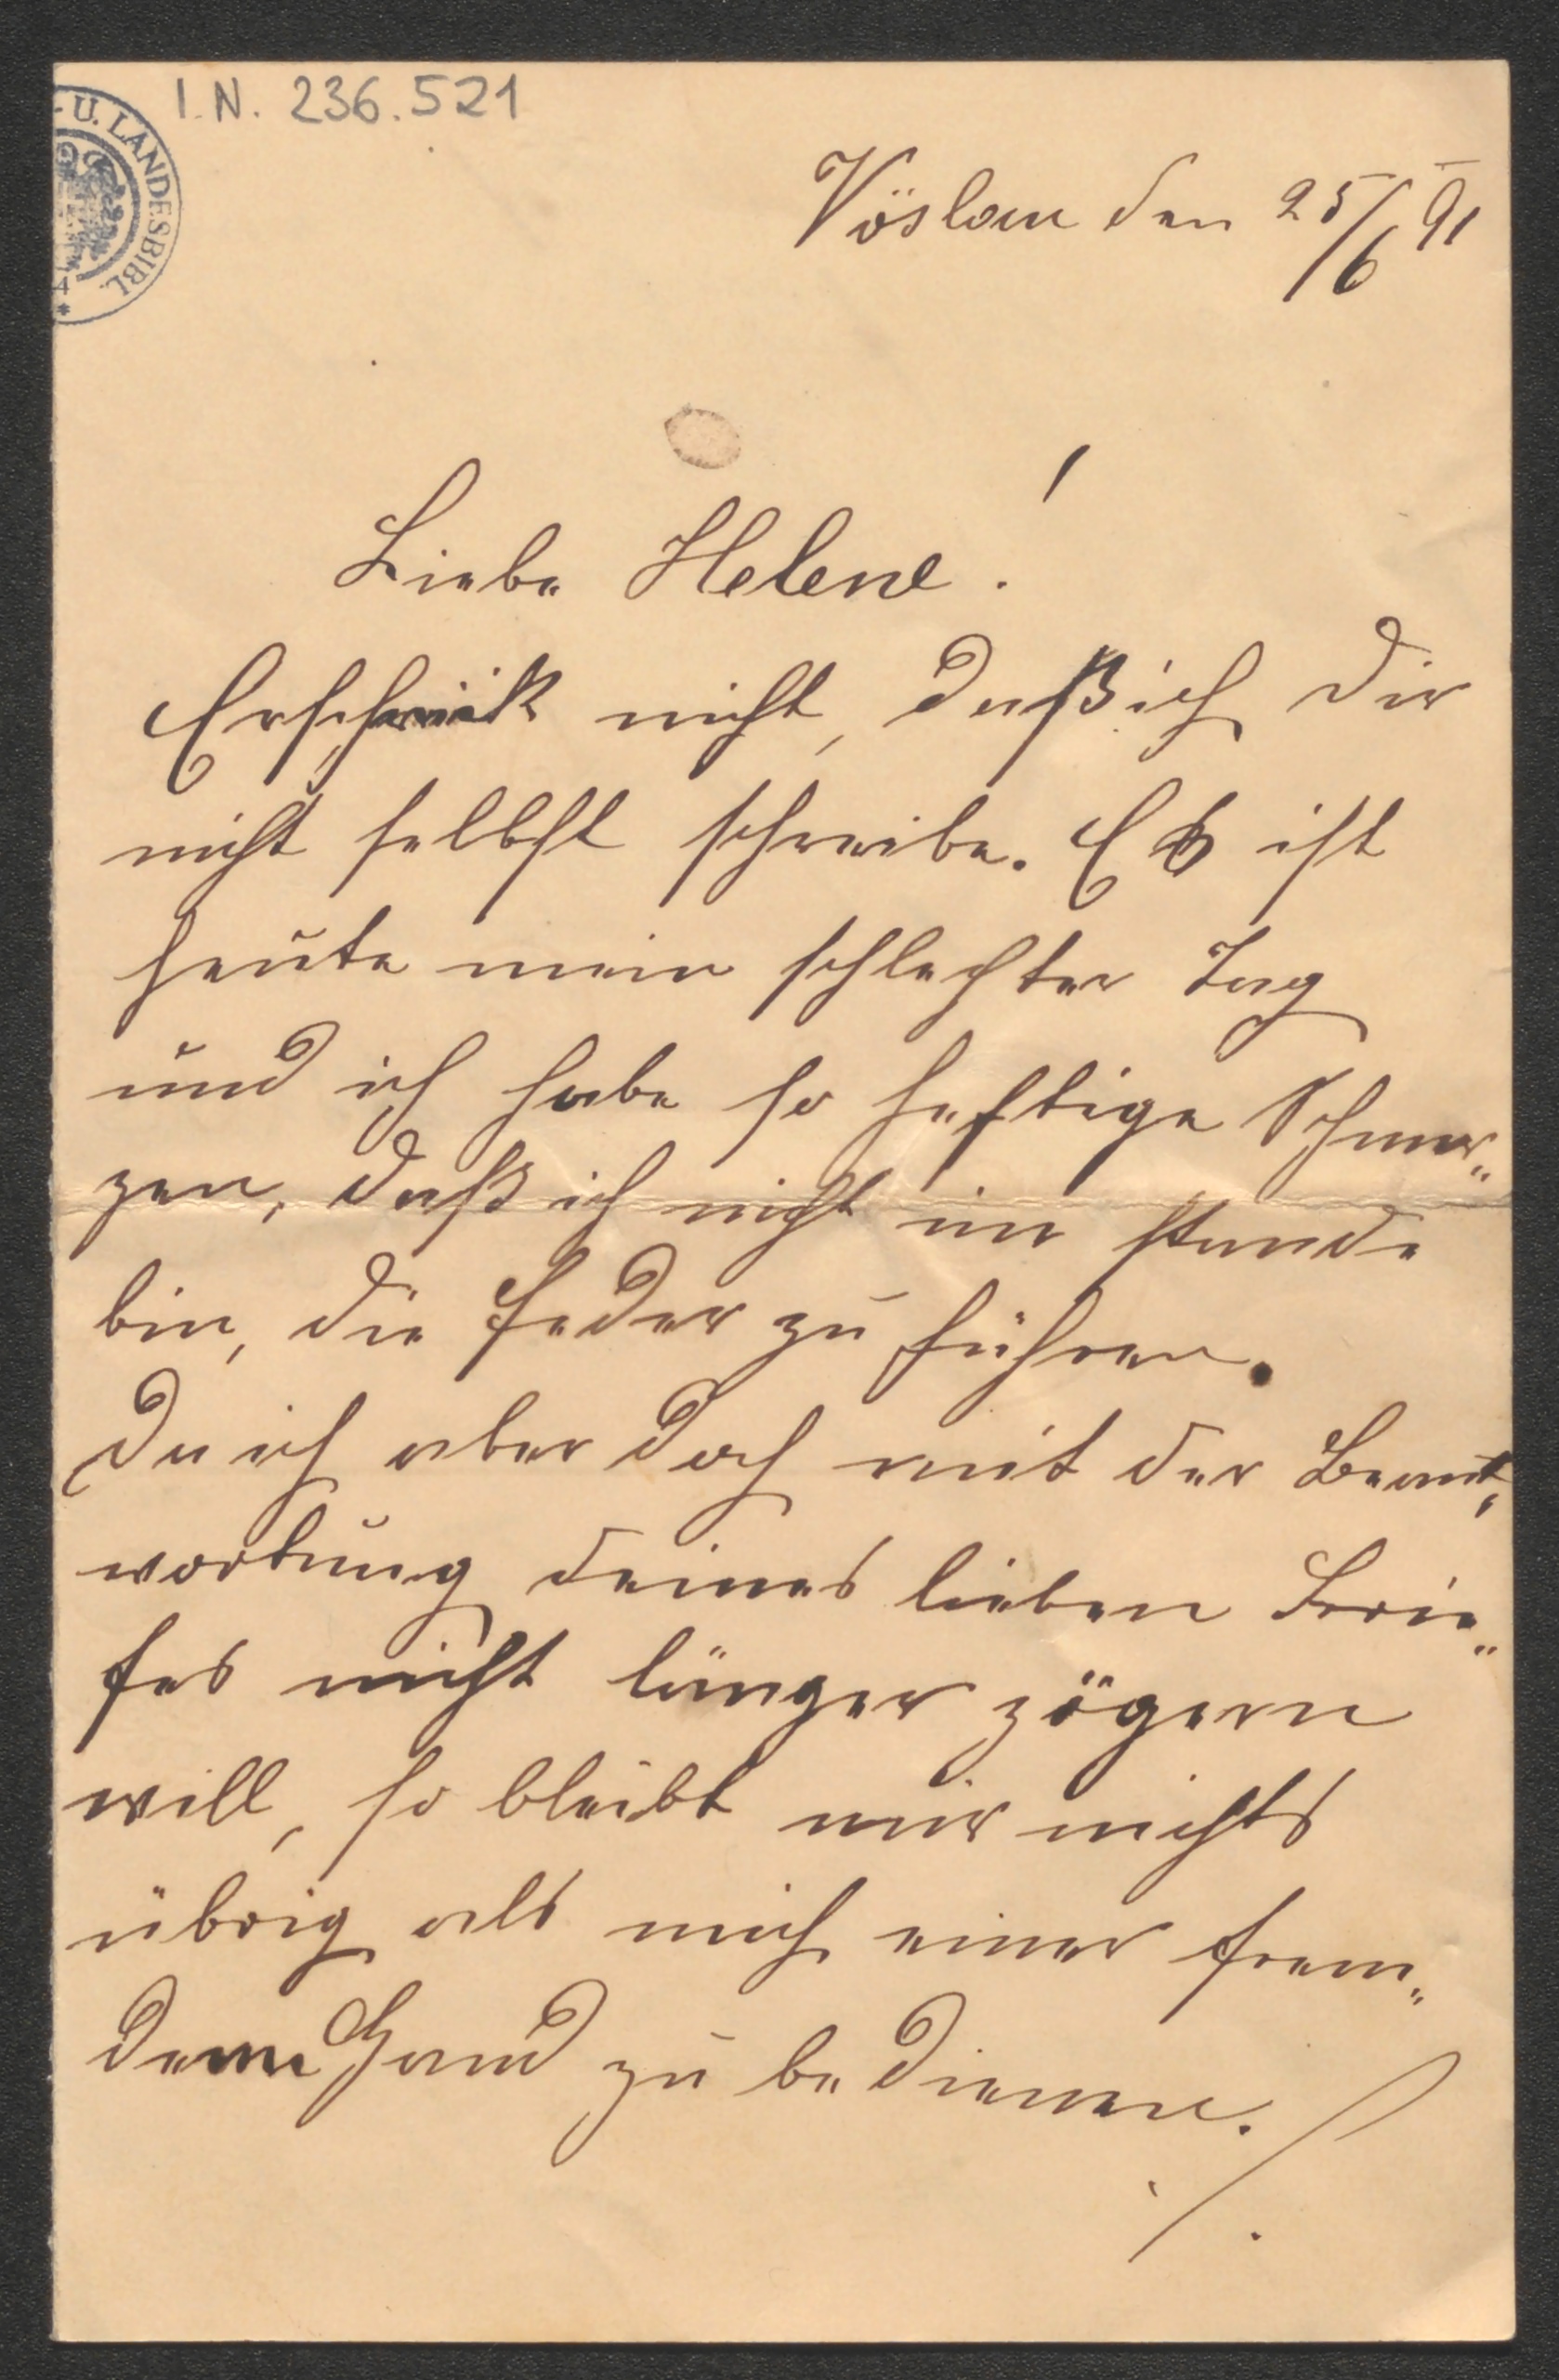 I.N. 236.521
- U. LANDESBIBL. *
Vöslau den 25/6 91
Liebe Helene!
Erschrick nicht, daß ich Dir
nicht selbst schreibe. Es ist
heute mein schlechter Tag
und ich habe so heftige Schmer„
zen, daß ich nicht im stande
bin, die Feder zu führen.
Da ich aber doch mit der Beant„
wortung deines lieben Brie„
fes nicht länger zögern
will, so bleibt mir nichts
übrig als mich einer frem„
den Hand zu bedienen.
./.